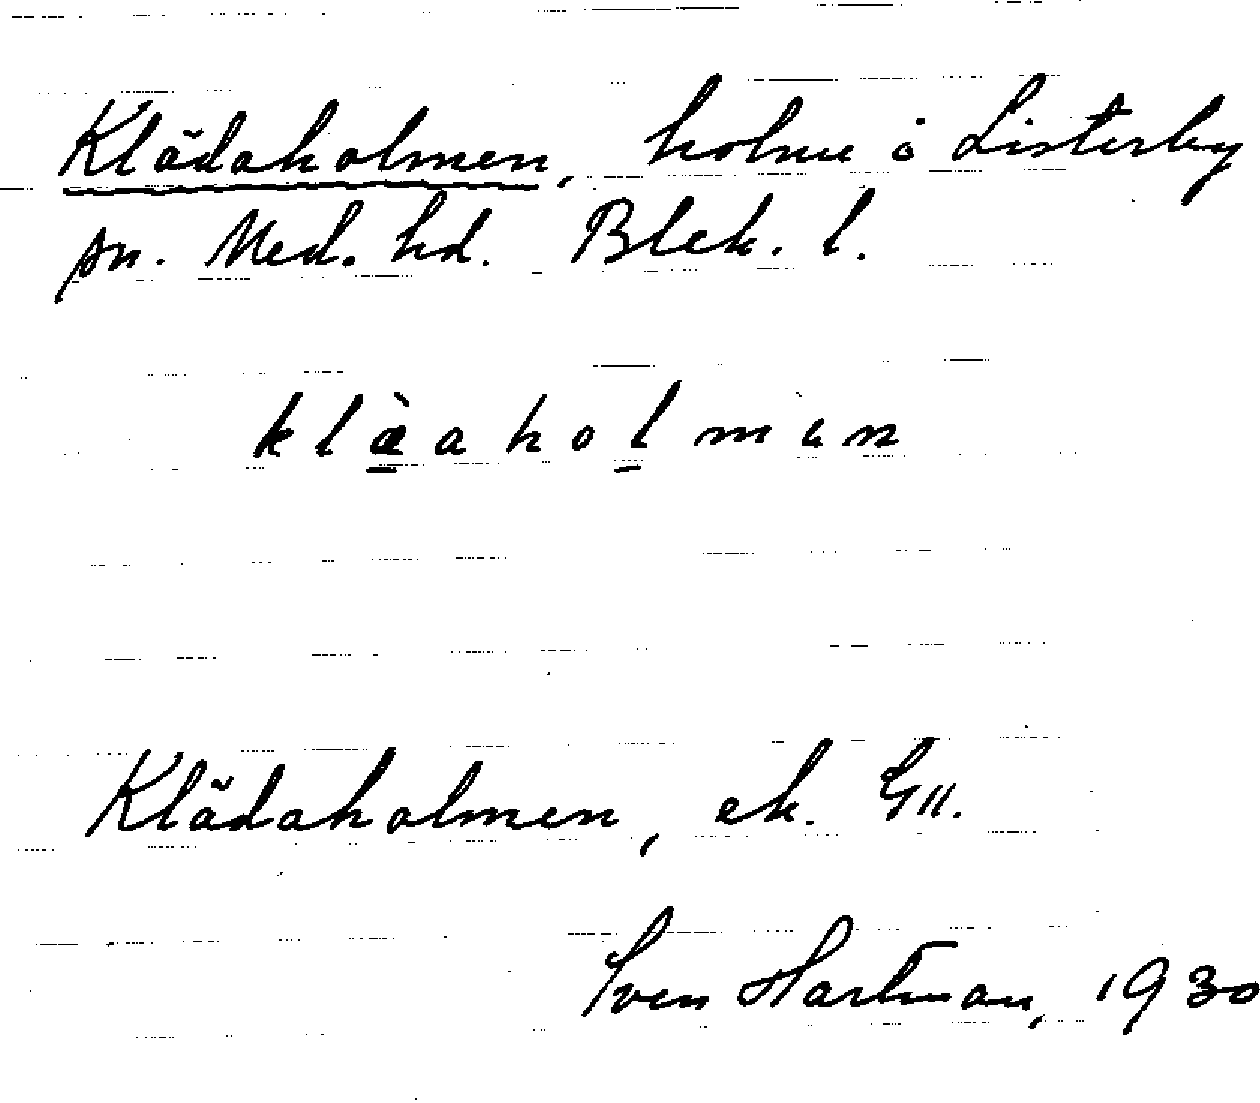 Klädaholmen, holme i Listerby
sn. Med. hd. Blek. l.
klæ̀aholmən
Klädaholmen, ek.
Sven Hartman, 1930